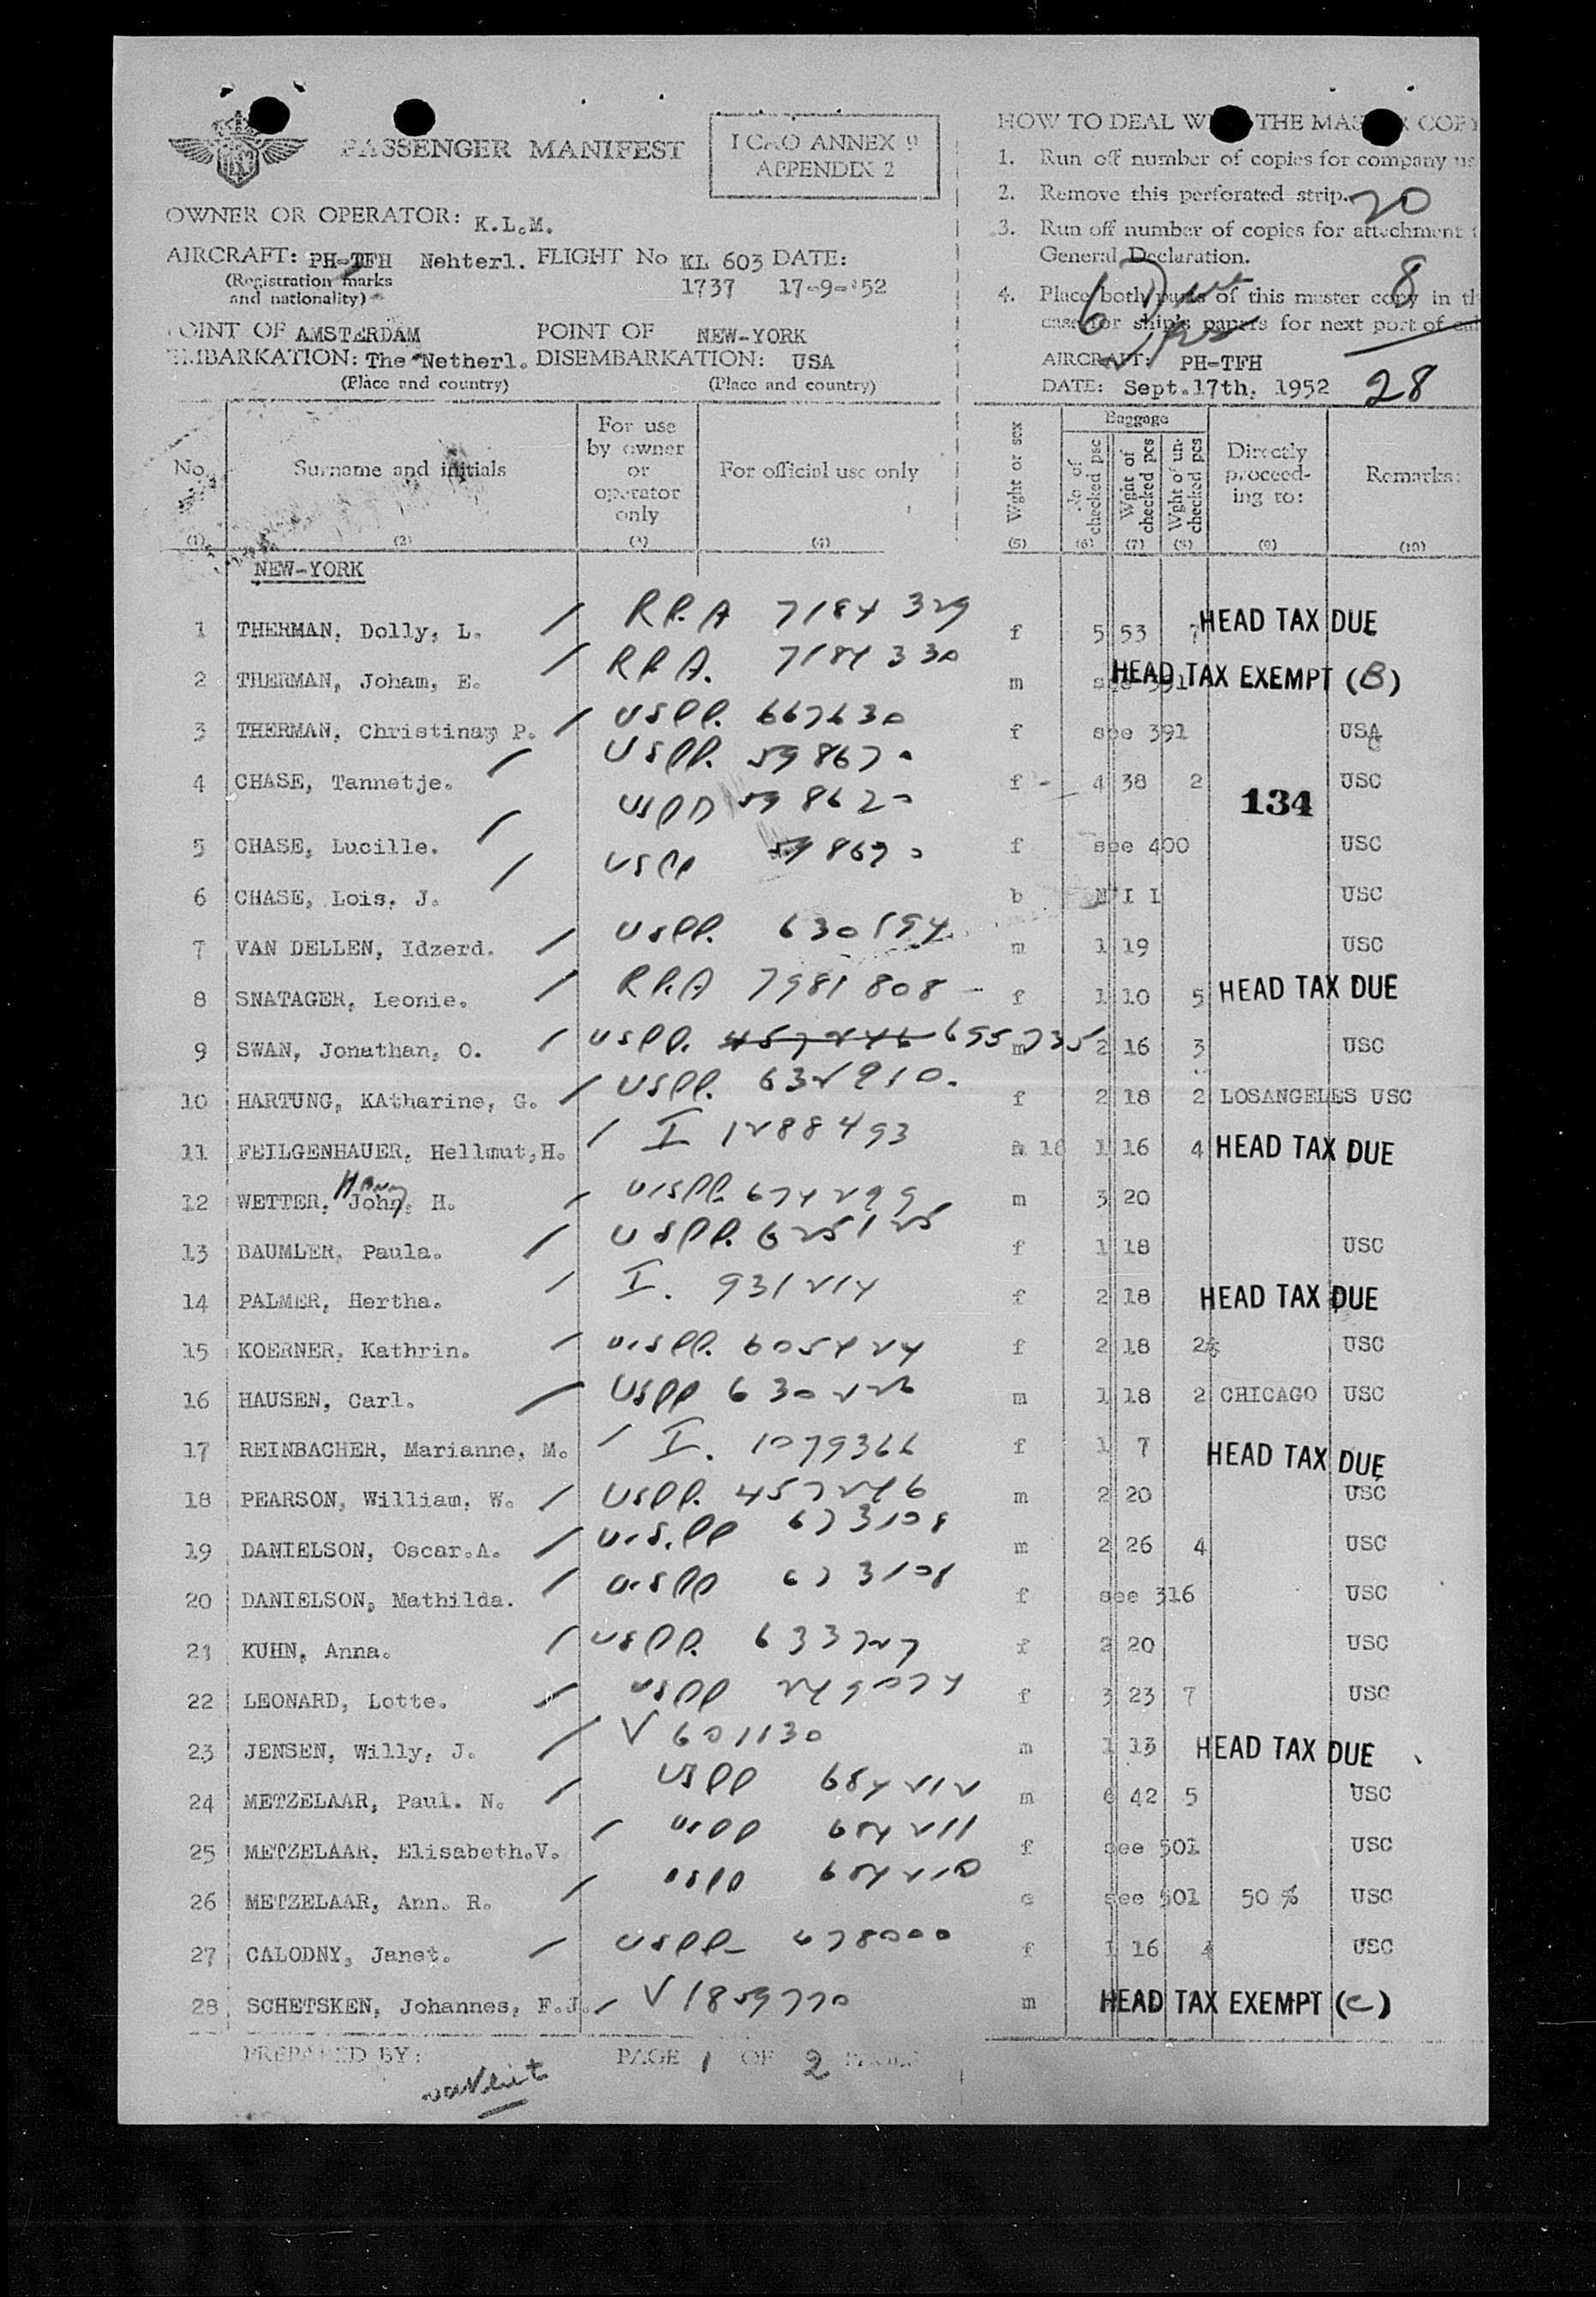 PASSENGER MANIFEST
ICAO ANNEX 9
APPENDIX 2
OWNER OR OPERATOR: K.L.M.
AIRCRAFT: PH-TFH Nehterl. FLIGHT No KL 603 DATE:
(Registration marks
and nationality)
1737 17-9-'52
POINT OF AMSTERDAM POINT OF NEW-YORK
EMBARKATION: The Netherl. DISEMBARKATION: USA
(Place and country) (Place and country)
HOW TO DEAL THE COPY
1. Run off number of copies for company us
2. Remove this perforated strip. 20
3. Run off number of copies for attachment t
General Declaration.
4. Place both parts of this master copy in th
8
case for ship's papers for next port of cal
AIRCRAFT: PH-TFH
DATE: Sept.17th. 1952 28
No. Surname and initials For use by owner or operator only For official use only Wght or sex Baggage No of checked psc Wght of checked pcs Wght of un-checked pcs Directly proceed-ing to: Remarks:
(1) (2) (3) (4) (5) (6) (7) (8) (9) (10)
NEW-YORK
1 THERMAN, Dolly, L. / R.P.A 7184329 f 5 53 7 HEAD TAX DUE
2 THERMAN, Joham, E. / R.P.A. 7184330 m see 391 HEAD TAX EXEMPT (B)
3 THERMAN, Christina, P. / USPP. 667630 f see 391 USA
4 CHASE, Tannetje. / USPP. 598670 f - 4 38 2 USC
134
5 CHASE, Lucille. / USPP 598670 f see 400 USC
6 CHASE, Lois. J. / USPP 598670 b N I I USC
7 VAN DELLEN, Idzerd. / USPP. 630194 m 1 19 USC
8 SNATAGER, Leonie. / RPA 7981808 f 1 10 5 HEAD TAX DUE
9 SWAN, Jonathan, O. / USPP. 457246 655735 m 2 16 3 USC
10 HARTUNG, KAtharine, G. / USPP. 632910. f 2 18 2 LOSANGELES USC
11 FEILGENHAUER, Hellmut,H. / I 1288493 m 16 1 16 4 HEAD TAX DUE
12 WETTER, John, H. Harry / USPP. 674299 m 3 20
13 BAUMLER, Paula. / USPP. 625125 f 1 18 USC
14 PALMER, Hertha. / I. 931214 f 2 18 HEAD TAX DUE
15 KOERNER, Kathrin. / U.SPP. 605424 f 2 18 2 USC
16 HAUSEN, Carl. / USPP 630226 m 1 18 2 CHICAGO USC
17 REINBACHER, Marianne, M. / I. 1079366 f 1 7 HEAD TAX DUE
18 PEARSON, William, W. / USPP. 457246 m 2 20 USC
19 DANIELSON, Oscar.A. / U.S.PP 673108 m 2 26 4 USC
20 DANIELSON, Mathilda. / U.SPP 673108 f see 316 USC
21 KUHN, Anna. / USPP. 633727 f 2 20 USC
22 LEONARD, Lotte. / USPP 249074 f 3 23 7 USC
23 JENSEN, Willy, J. / V 601130 m 1 13 HEAD TAX DUE
24 METZELAAR, Paul. N. / USPP 684212 m 6 42 5 USC
25 METZELAAR, Elisabeth.V. / USPP 684211 f see 501 USC
26 METZELAAR, Ann. R. / USPP 684210 c see 501 50 % USC
27 CALODNY, Janet. / USPP- 478000 f 1 16 4 USC
28 SCHETSKEN, Johannes, F.J. / V 1859770 m HEAD TAX EXEMPT (C)
PREPARED BY: PAGE 1 OF 2 PAGES